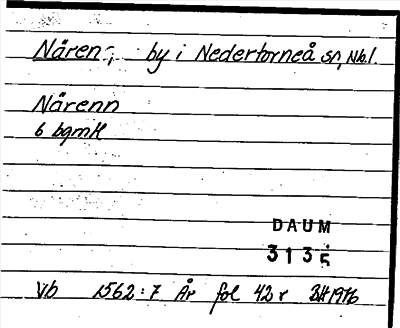 Nären, by i Nedertorneå sn, Nbl.
Nårenn
6 bgmH
DAUM
3135
Vb 1562:7 År fol 42r BH 1976